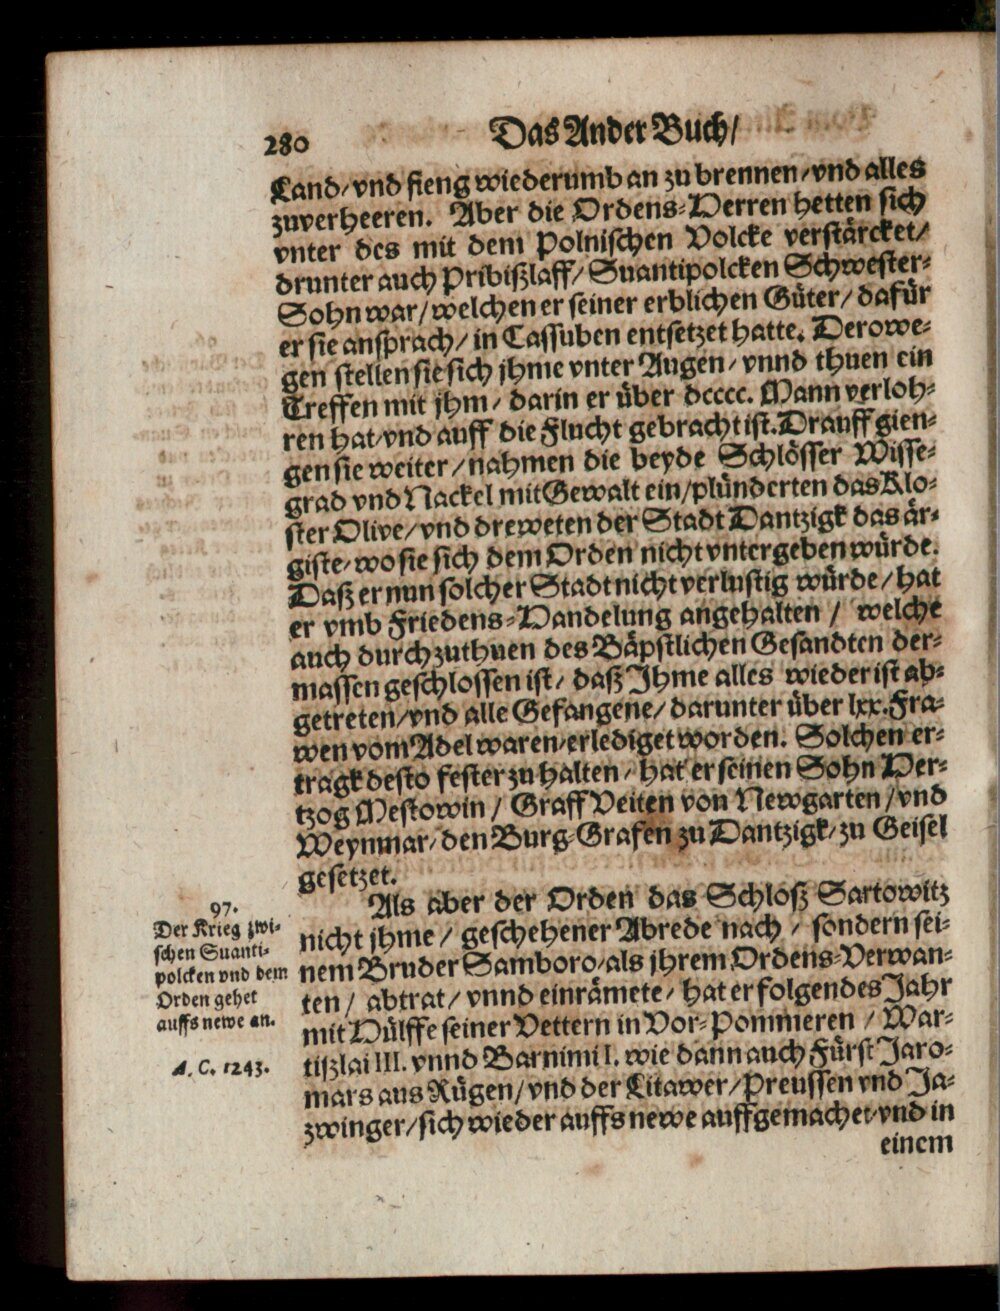 280 Das Ander Buch/
Land/vnd fieng wiederumb an zu brennen/vnd alles
zuverheeren. Aber die Ordens-Herren hetten sich
vnter des mit dem Polnischen Volcke verstärcket/
drunter auch Pribißlaff/Suantipolcken Schwester-
Sohn war/welchen er seiner erblichen Güter/dafür
er sie ansprach/in Cassuben entsetzet hatte. Derowe-
gen stellen sie sich jhme vnter Augen/vnnd thuen ein
Treffen mit jhm/darin er über dcccc. Mann verloh-
ren hat/vnd auff die Flucht gebracht ist. Drauff gien-
gen sie weiter/nahmen die beyde Schlösser Wisse-
grad vnd Nackel mit Gewalt ein/plünderten das Klo-
ster Olive/vnd dreweten der Stadt Dantzigk das är-
giste/wo sie sich dem Orden nicht vntergeben würde.
Daß er nun solcher Stadt nicht verlustig würde/hat
er vmb Friedens-Handelung angehalten/welche
auch durch zuthuen des Bäpstlichen Gesandten der-
massen geschlossen ist/daß Jhme alles wieder ist ab-
getreten/vnd alle Gefangene/darunter über lxx. Fra-
wen vom Adel waren/erlediget worden. Solchen er-
tragk desto fester zu halten/hat er seinen Sohn Her-
tzog Mestowin/Graff Veiten von Newgarten/vnd
Weynmar/den Burg-Grafen zu Dantzigk/zu Geisel
gesetzet.
97.
Der Krieg zwi-
schen Suanti-
polcken vnd dem
Orden gehet
auffs newe an.
A. C. 1243.
Als aber der Orden das Schloß Sartowitz
nicht jhme/geschehener Abrede nach/sondern sei-
nem Bruder Samboro/als jhrem Ordens-Verwan-
ten/abtrat/vnnd einrämete/hat er folgendes Jahr
mit Hülffe seiner Vettern in Vor-Pommeren/War-
tißlai III. vnnd Barnimi I. wie dann auch Fürst Jaro-
mars aus Rügen/vnd der Litawer/Preussen vnd Ja-
zwinger/sich wieder auffs newe auffgemachet/vnd in
einem